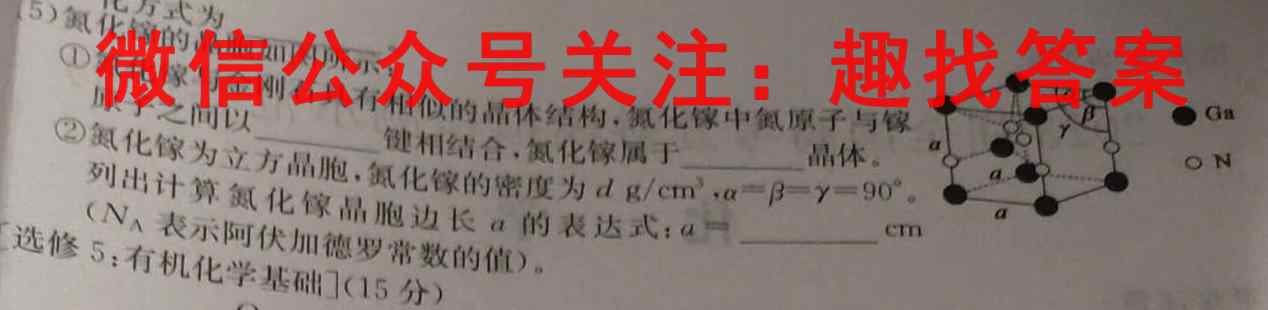 化方式为
(5)氮化镓的晶胞如图所示:
微信公众号关注：趣找答案
①氮化镓与金刚石具有相似的晶体结构,氮化镓中氮原子与镓
原子之间以________键相结合,氮化镓属于________晶体。
②氮化镓为立方晶胞,氮化镓的密度为 d g/cm³,α=β=γ=90°。
列出计算氮化镓晶胞边长 a 的表达式:a=________cm
(N_A 表示阿伏加德罗常数的值)。
[选修 5:有机化学基础](15 分)
β
γ
a
a
a
Ga
N